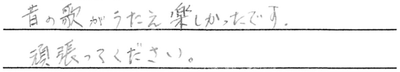 昔の歌がうたえ楽しかったです.
頑張ってください。